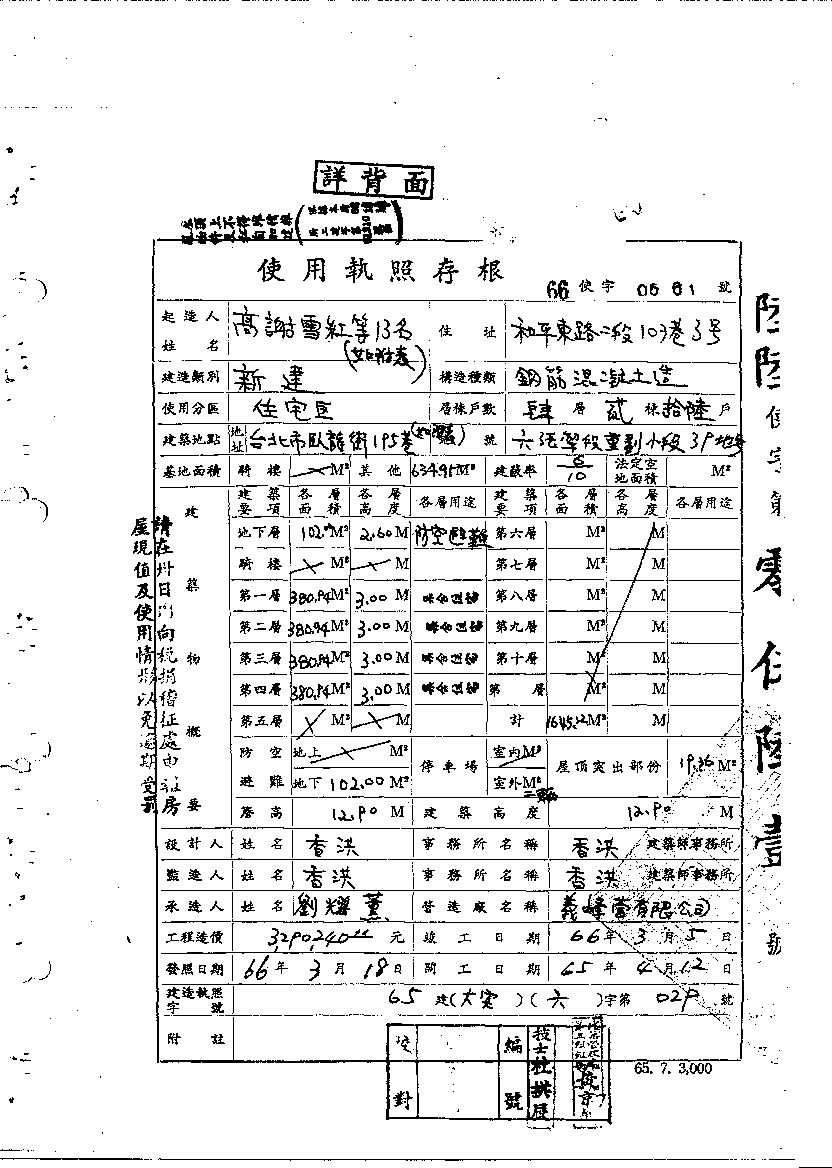 詳背面
使用執照存根
66 使字 0561 號
起造人姓名 高謝雪紅等13名 (如附表) 住址 和平東路二段103巷3號
建造類別 新建 構造種類 鋼筋混凝土造
使用分區 住宅區 層棟戶數 肆層 貳棟 拾陸戶
建築地點 地址 台北市臥龍街195巷 號
基地面積 騎樓 M² 其他 634.95M² 建蔽率 6/10 法定空地面積 M²
建築物概要
建築要項 各層面積 各層高度 各層用途 建築要項 各層面積 各層高度 各層用途
地下層 102.0M² 2.60M 防空避難 第六層 M² M
騎樓 M² M 第七層 M² M
第一層 380.94M² 3.00M 第八層 M² M
第二層 380.94M² 3.00M 第九層 M² M
第三層 380.94M² 3.00M 第十層 M² M
第四層 380.94M² 3.00M 第 層 M² M
第五層 M² M 計 M² M
防空避難 地上 M² 停車場 室內M² 屋頂突出部份 19.36M²
地下 102.00M² 室外M²
簷高 12.90 M 建築高度 12.90 M
設計人 姓名 香洪 事務所名稱 香洪 建築師事務所
監造人 姓名 香洪 事務所名稱 香洪 建築師事務所
承造人 姓名 劉耀薰 營造廠名稱 義峰營造有限公司
工程造價 3,290,240 元 竣工日期 66年3月5日
發照日期 66年3月18日 開工日期 65年4月12日
建造執照字號 65建(大安)(六)字第029號
附註
請在卅日內向稅捐稽征處申報房
屋現值及使用情形以免逾期受罰
使字第零伍陸壹號
65. 7. 3,000
校對 編號
技士杜拱辰